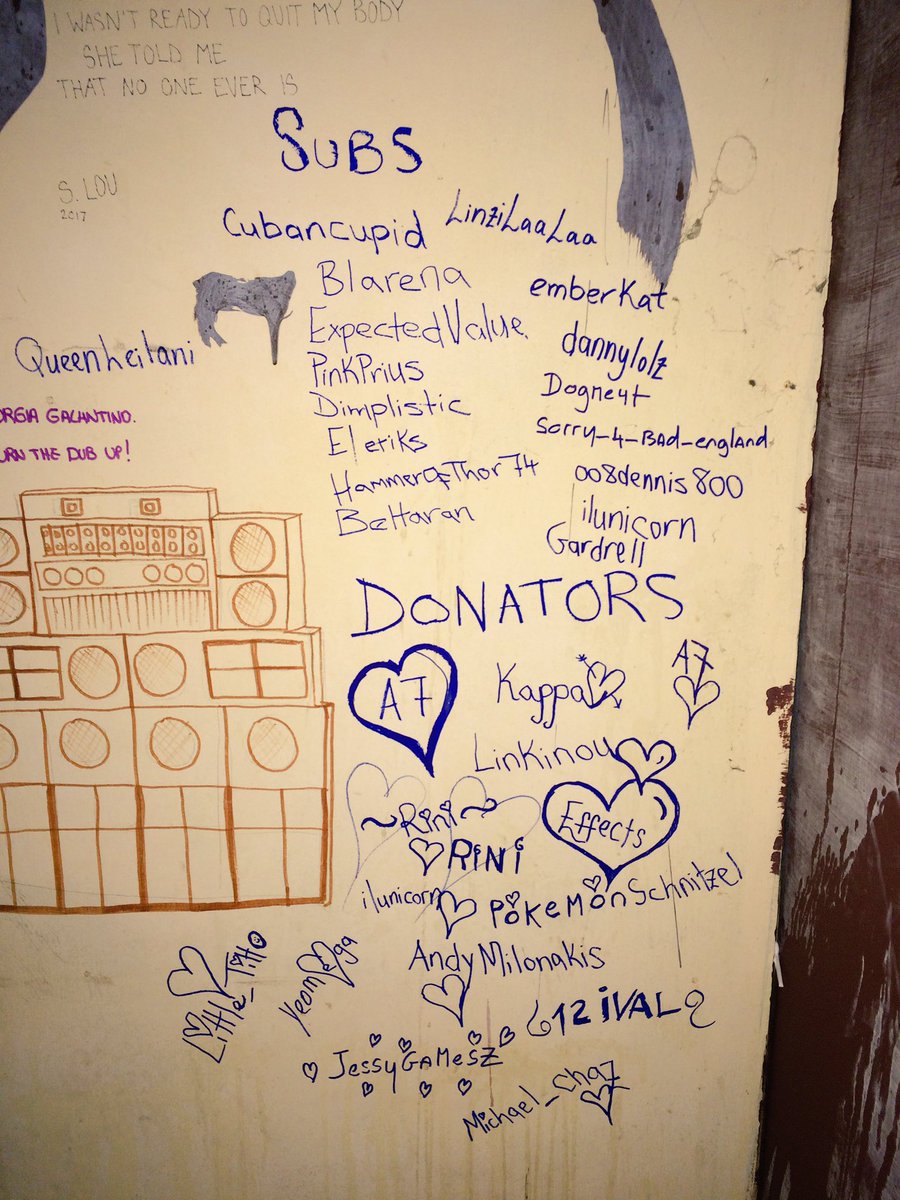 I WASN'T READY TO QUIT MY BODY
SHE TOLD ME
THAT NO ONE EVER IS
S. LOU
2017
SUBS
Cubancupid
LinziLaaLaa
Blarena
emberKat
ExpectedValue
Queenleilani
dannylolz
PinkPrius
Dimplistic
Dogne4t
ORGIA GALANTINO.
URN THE DUB UP!
Eleriks
Sorry_4_BAD_england
HammerOfThor74
008dennis800
Beltaran
ilunicorn
Gardrell
DONATORS
A7
Kappa
A7
Linkinou
~Rini~
Effects
RINI
ilunicorn
POKEMONSchnitzel
AndyMilonakis
Little_Titto
12 iVAL
JessyGAMESZ
Michael_Cha7